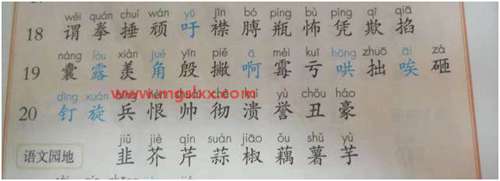 wěi quán chuí wán yū jīn bó píng bù píng qī qiā
18 谓 拳 捶 顽 吁 襟 膊 瓶 怖 凭 欺 掐
náng lòu xiàn jué yīn piē ā méi kuī hōng zhuō āi zá
19 囊 露 羡 角 殷 撇 啊 霉 亏 哄 拙 唉 砸
dìng xuán
20 钉 旋 兵 恨 帅 彻 溃 誉 丑 豪
www.mgskxx.com
jiǔ jiè qín suàn jiāo ǒu shǔ yù
语文园地 韭 芥 芹 蒜 椒 藕 薯 芋